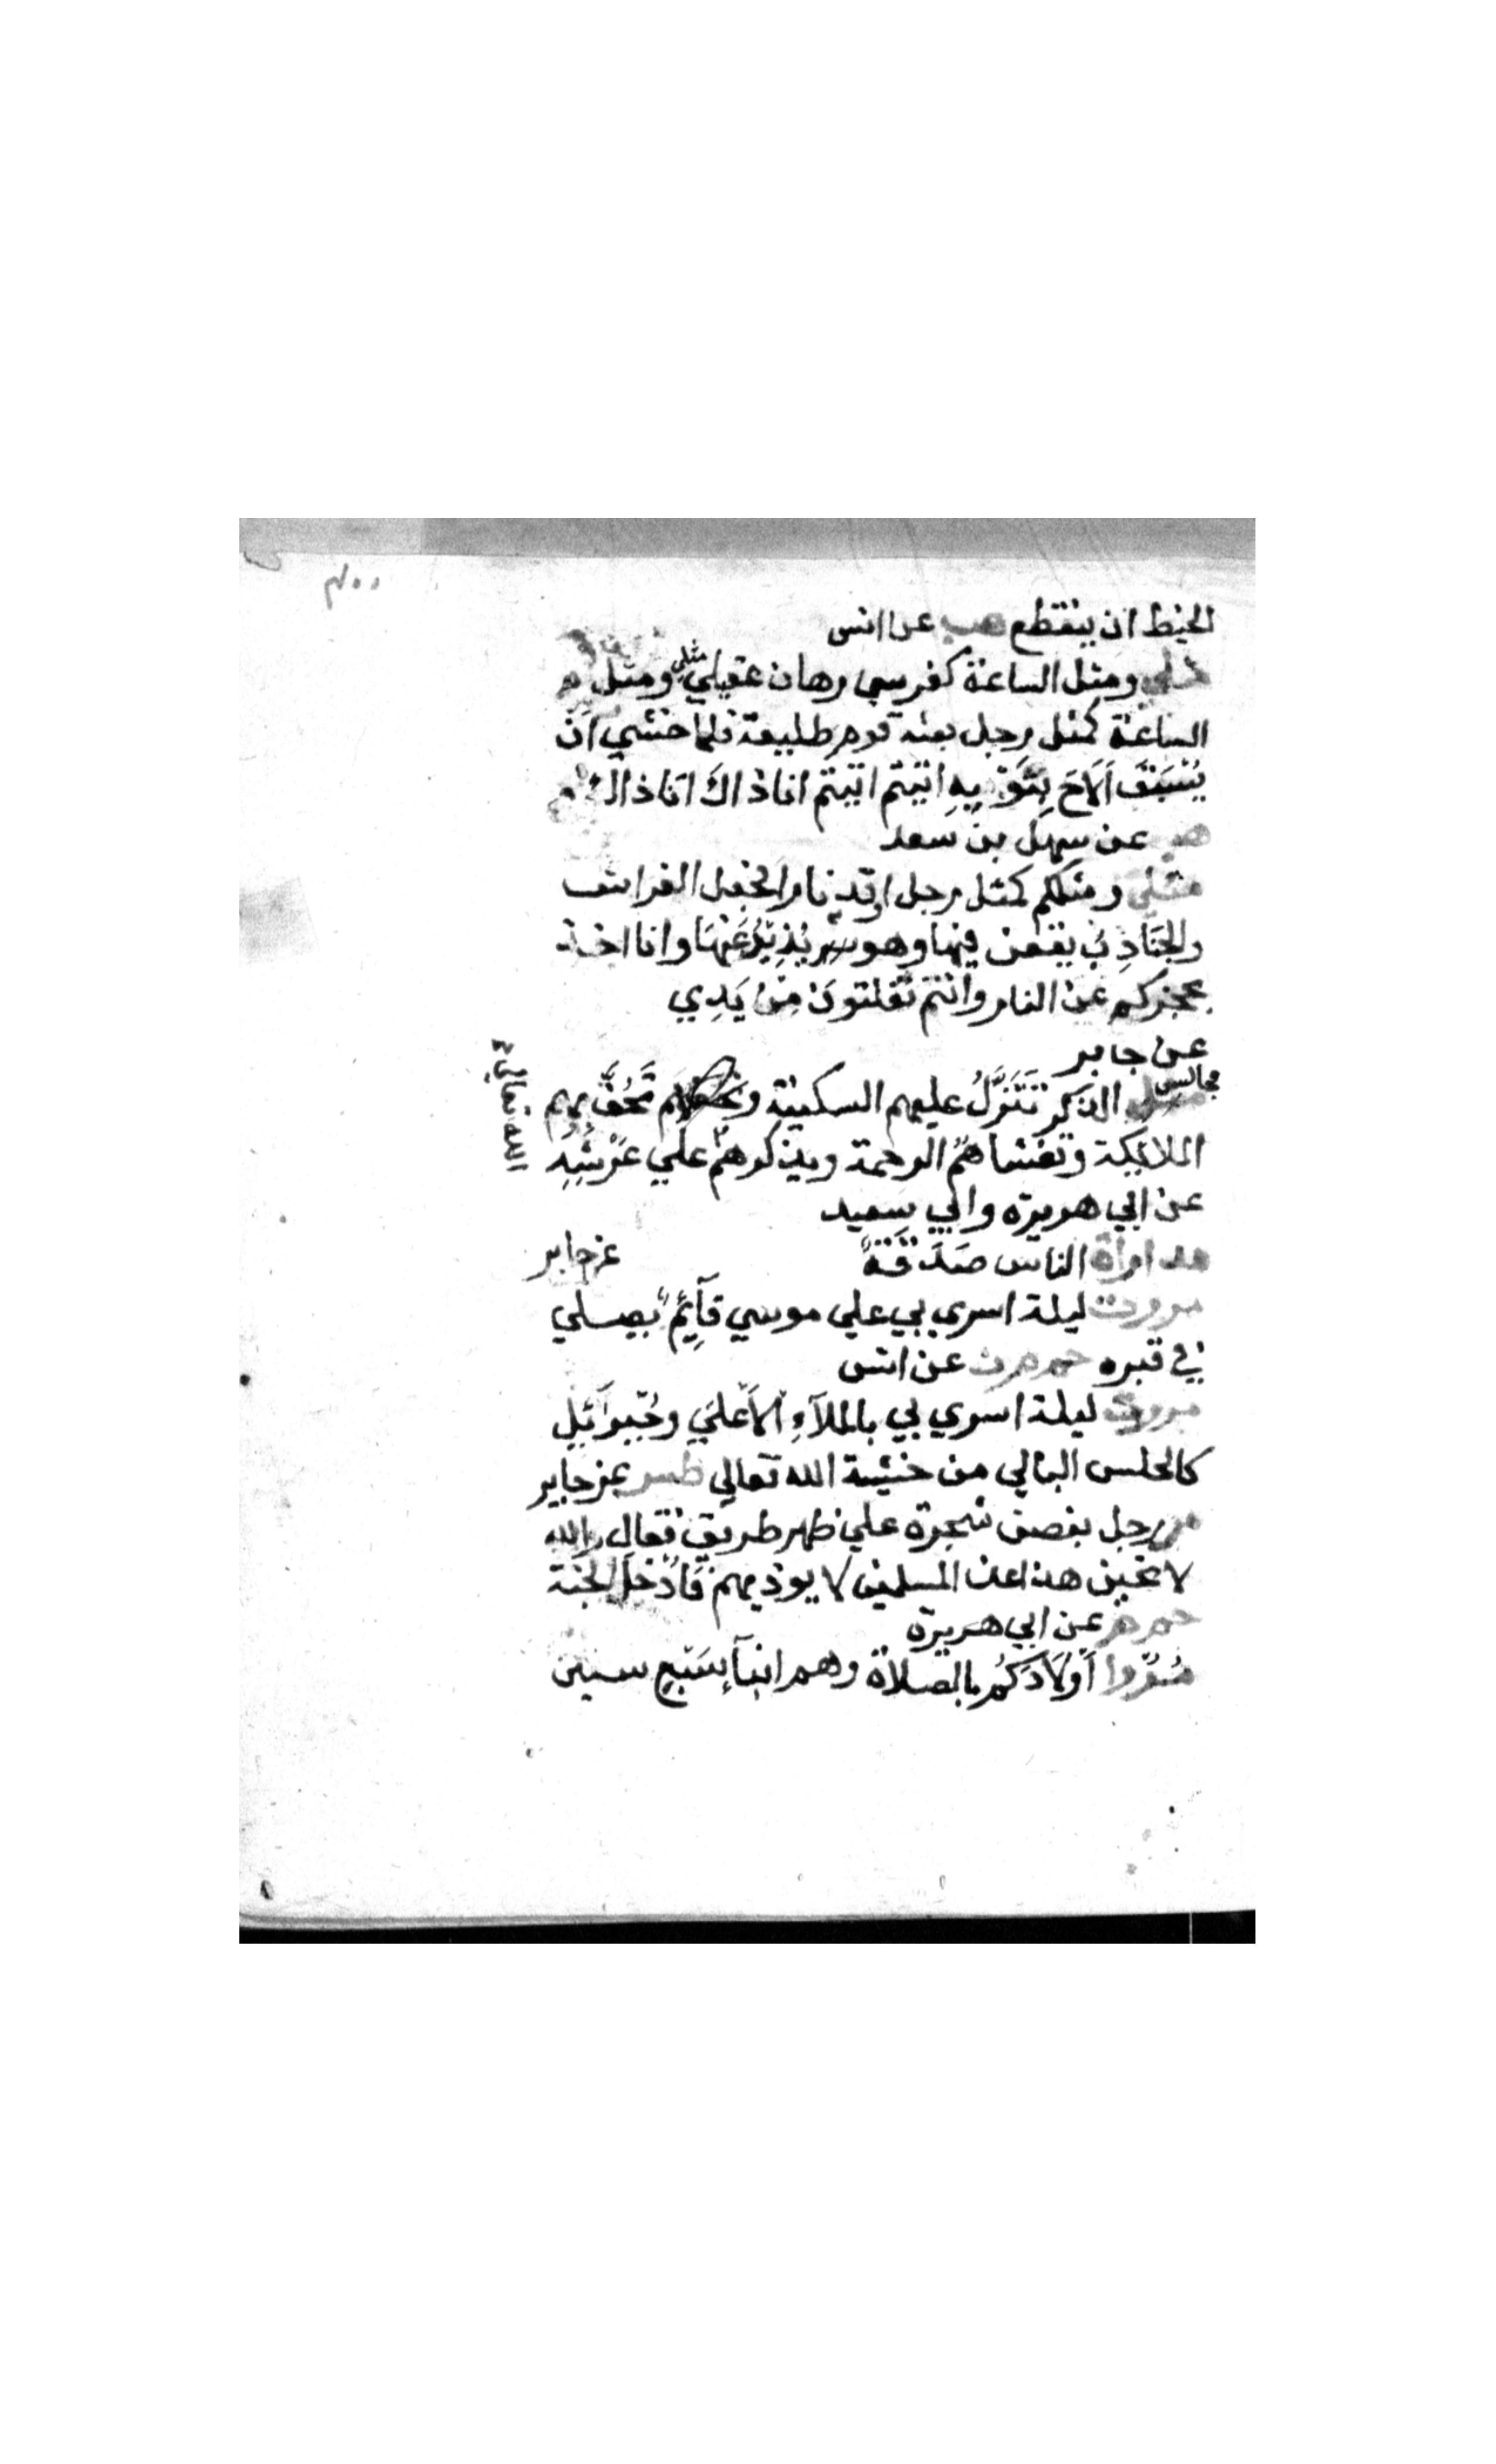 الخيط ان ينقطع هب عن انس
مثلي ومثل الساعة كفرسي رهان مثلي ومثل
الساعة كمثل رجل بعثه قوم طليعة فلما خشي ان
يُسْبَقَ اَلَاحَ بِثَوْبِهِ اتيتم اتيتم انا ذاك انا ذاك
هب عن سهل بن سعد
مثلي ومثلكم كمثل رجل اوقد نارا فجعل الفراش
والجَنَادِبُ يقعن فيها وهو يَذُبُّهُنَّ عَنْهَا وانا اخذ
بحجزكم عن النار وانتم تفلتون مِنْ يَدِي
عن جابر
مجالس الذكر تَتَنَزَّلُ عليهم السكينة وَتَحُفُّ بهم
الملائيكة وتغشاهُم الرحمة ويذكرهم علي عَرْشِهِ
عن ابي هريرة وابي سعيد
مداراة الناس صَدَقَةٌ عن جابر
مررت ليلة اسري بي علي موسي قَآئِمٌ يصلي
في قبره حم م ن عن انس
مررت ليلة اسري بي بالملآءِ الاَعْلَي وجُبْرَائِلِ
كالحلس البالي من خشية الله تعالي طس عن جابر
مر رجل بغصن شجرة علي ظهر طريق فقال والله
لا نحين هذا عن المسلمين لا يوذيهم فَاُدْخِلَ الجنة
حم م عن ابي هريرة
مُرُوا اَوْلَادَكُم بالصلاة وهم ابنآء سَبْعِ سنين